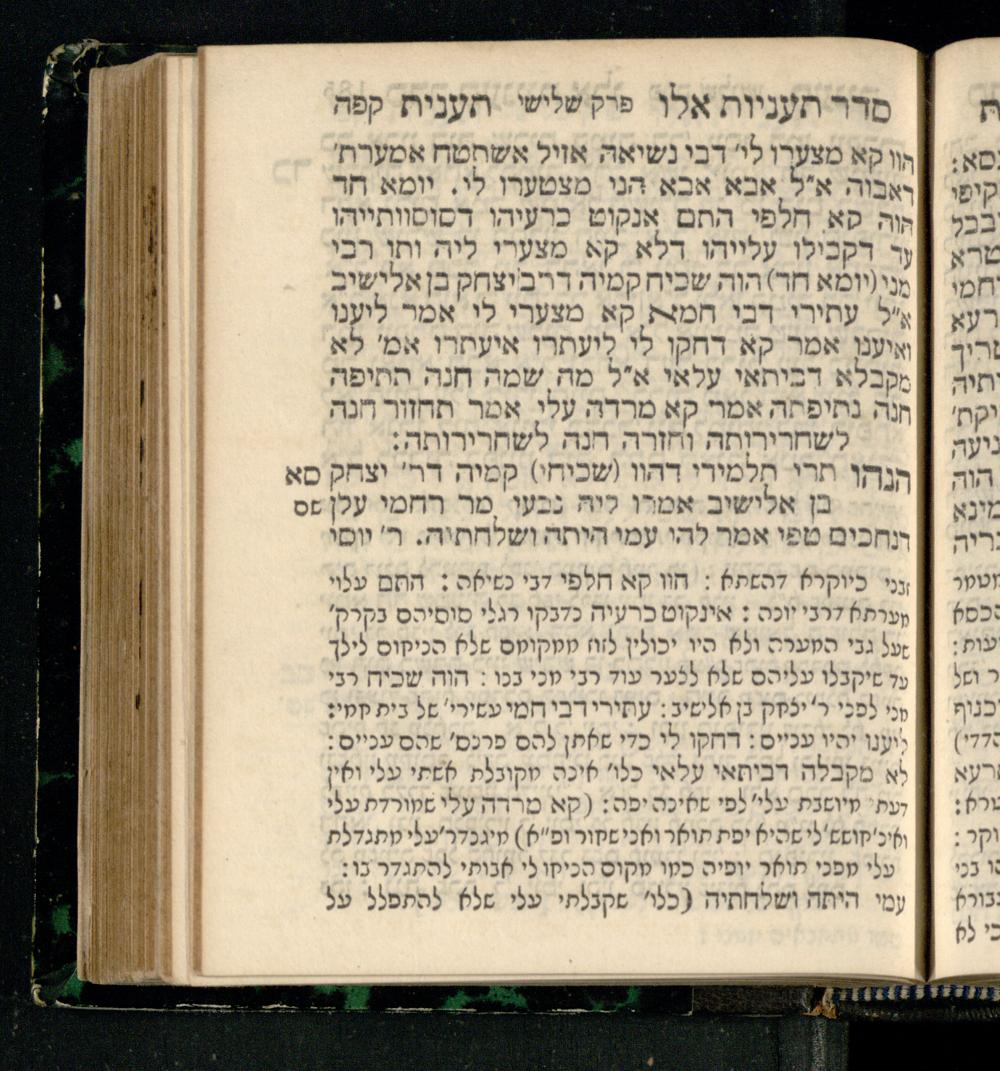 סדר תעניות אלו פרק שלישי תענית קפה
הוו קא מצערו לי׳ דבי נשיאה אזיל אשתטח אמערת׳
דאבוה א״ל אבא אבא הני מצטערו לי. יומא חד
הוה קא חלפי התם אנקוט כרעיהו דסוסוותייהו
עד דקבילו עלייהו דלא קא מצערי ליה ותו רבי
מני (יומא חד) הוה שכיח קמיה דרב יצחק בן אלישיב
א״ל עתירי דבי חמאי קא מצערי לי אמר ליענו
ואיענו אמר קא דחקו לי ליעתרו איעתרו אמ׳ לא
מקבלא דביתאי עלאי א״ל מה שמה חנה תתיפה
חנה נתיפתה אמר קא מרדה עלי אמר תחזור חנה
לשחרירותה וחזרה חנה לשחרירותה:
הנהו תרי תלמידי דהוו (שכיחי) קמיה דר׳ יצחק סא
בן אלישיב אמרו ליה נבעי מר רחמי עלן שס
דנחכים טפי אמר להו עמי היתה ושלחתיה. ר׳ יוסי
זבני כיוקרא דהשתא: הוו קא חלפי דבי נשיאה: התם עלוי
מערתא דרבי יונה: אינקוט כרעיה נדבקו רגלי סוסיהם בקרק׳
שעל גבי המערה ולא היו יכולין לזוז ממקומם שלא הניחום לילך
עד שיקבלו עליהם שלא לצער עוד רבי מני בנו: הוה שכיח רבי
מני לפני ר׳ יצחק בן אלישיב: עתירי דבי חמי עשירי׳ של בית חמי:
ליענו יהיו עניים: דחקו לי כדי שאתן להם פרנס׳ שהם עניים:
לא מקבלה דביתאי עלאי כלו׳ אינה מקובלת אשתי עלי ואין
דעת׳ מיושבת עלי׳ לפי שאינה יפה: (קא מרדה עלי שמורדת עלי
ואינ׳ חוששׁ׳ לי שהיא יפת תואר ואני שחור ופ״א) מיגנדר׳ עלי מתגדלת
עלי מפני תואר יופיה כמו מקום הניחו לי אבותי להתגדר בו:
עמי היתה ושלחתיה (כלו׳ שקבלתי עלי שלא להתפלל על